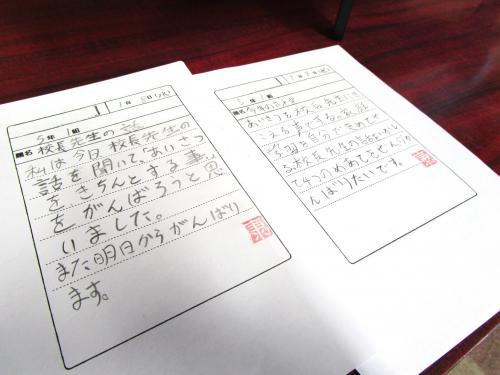 1月8日(火)
5年1組
題名 校長先生の話
私は今日校長先生の
話を聞いて、「あいさつ
をきちんとする事」
をがんばろうと思
いました。
また明日からがんばり
ます。
5年1組
題名 今年のめあて
あいさつを校長先生にき
こえる声でする。家庭
学習を自分できめてや
る。校長先生の話をいかし
て4つのめあてをがん
ばりたいです。